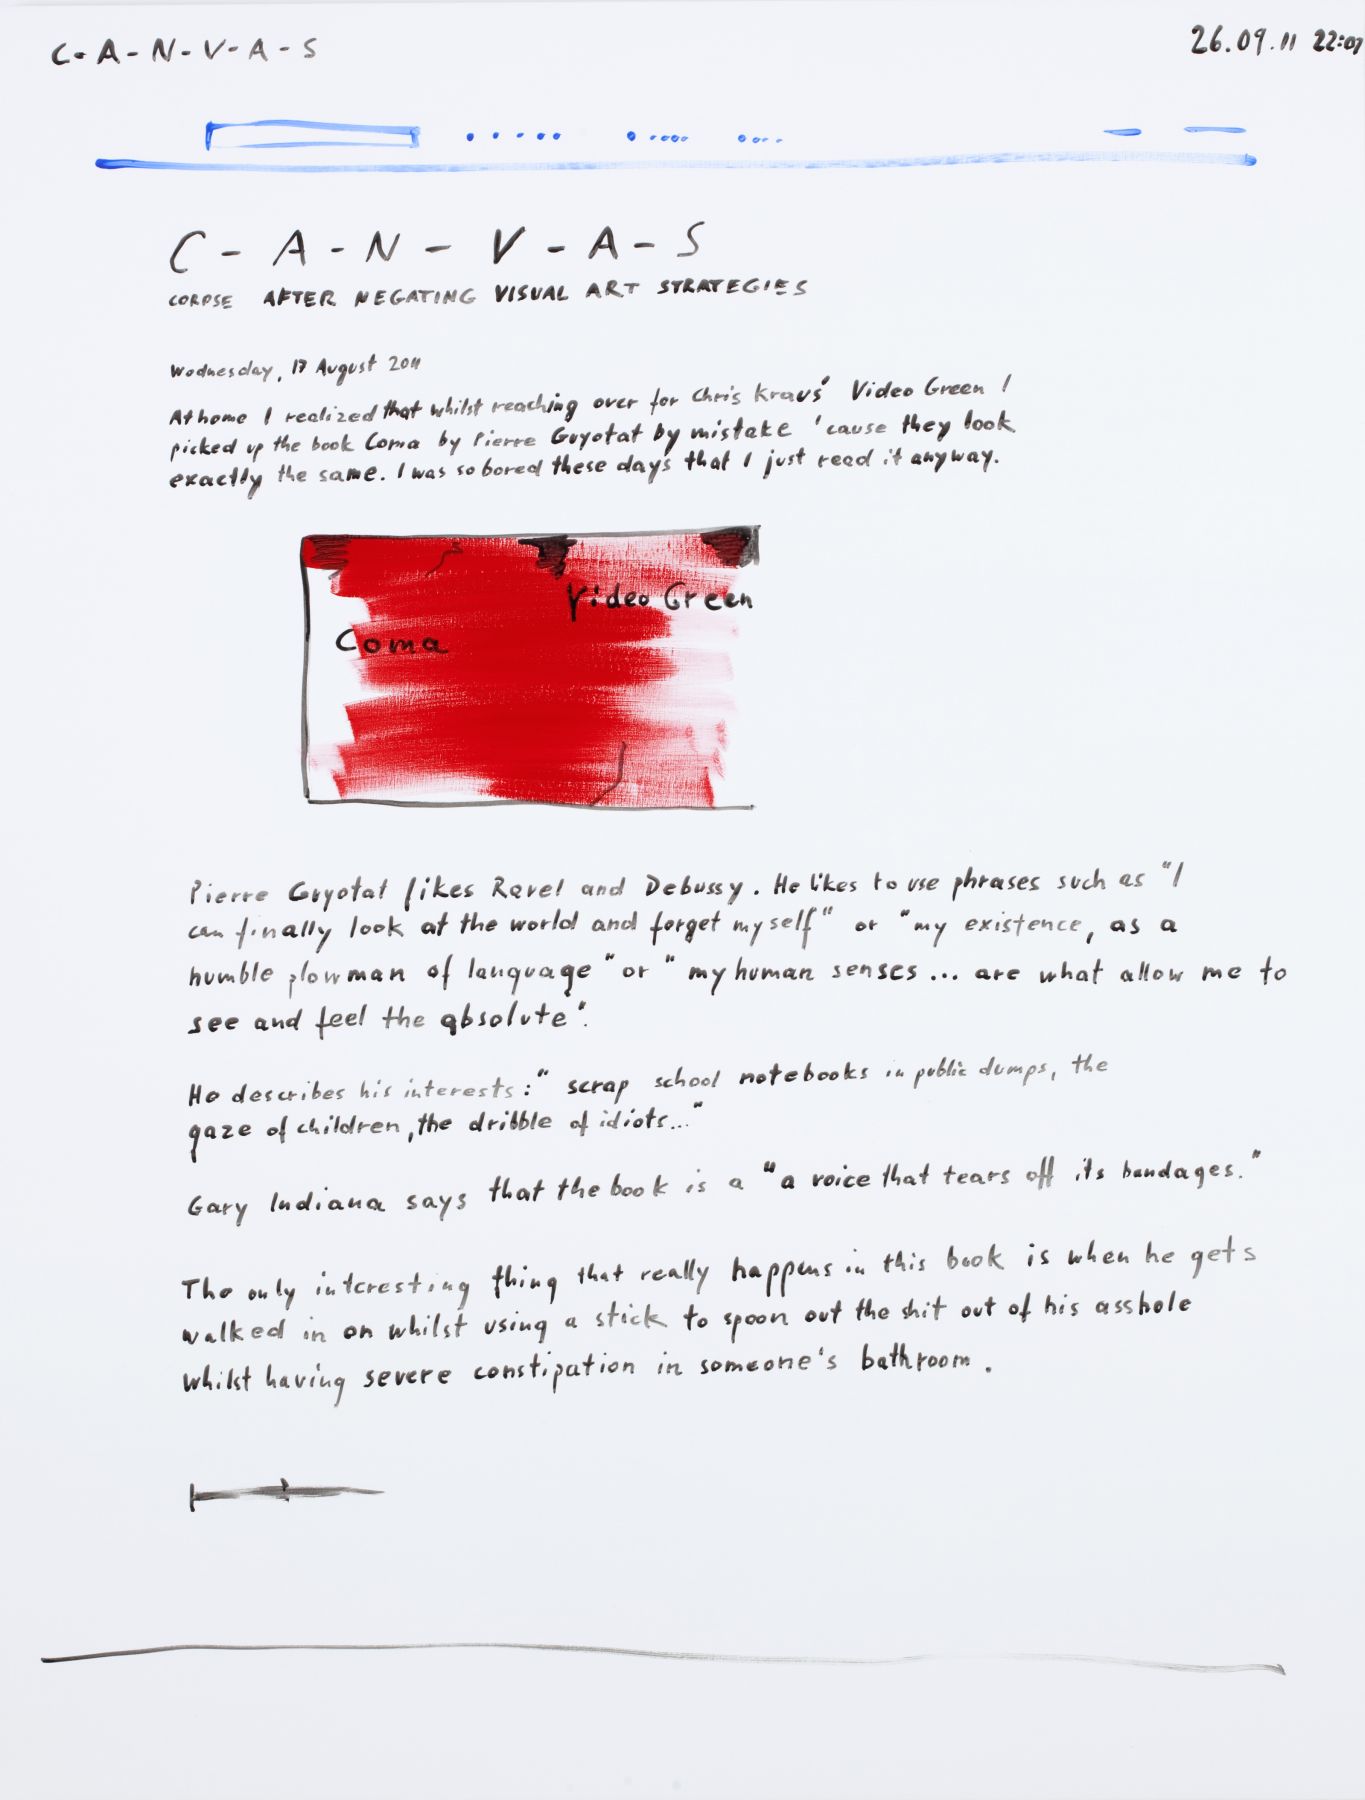 C-A-N-V-A-S
26.09.11 22:07
C - A - N - V - A - S
CORPSE AFTER NEGATING VISUAL ART STRATEGIES
Wednesday, 17 August 2011
At home I realized that whilst reaching over for Chris Kraus' Video Green I
picked up the book Coma by Pierre Guyotat by mistake 'cause they look
exactly the same. I was so bored these days that I just read it anyway.
Video Green
Coma
Pierre Guyotat likes Ravel and Debussy. He likes to use phrases such as "I
can finally look at the world and forget myself" or "my existence, as a
humble plowman of language" or "my human senses... are what allow me to
see and feel the absolute".
He describes his interests: "scrap school notebooks in public dumps, the
gaze of children, the dribble of idiots..."
Gary Indiana says that the book is a "a voice that tears off its bandages."
The only interesting thing that really happens in this book is when he gets
walked in on whilst using a stick to spoon out the shit out of his asshole
whilst having severe constipation in someone's bathroom.